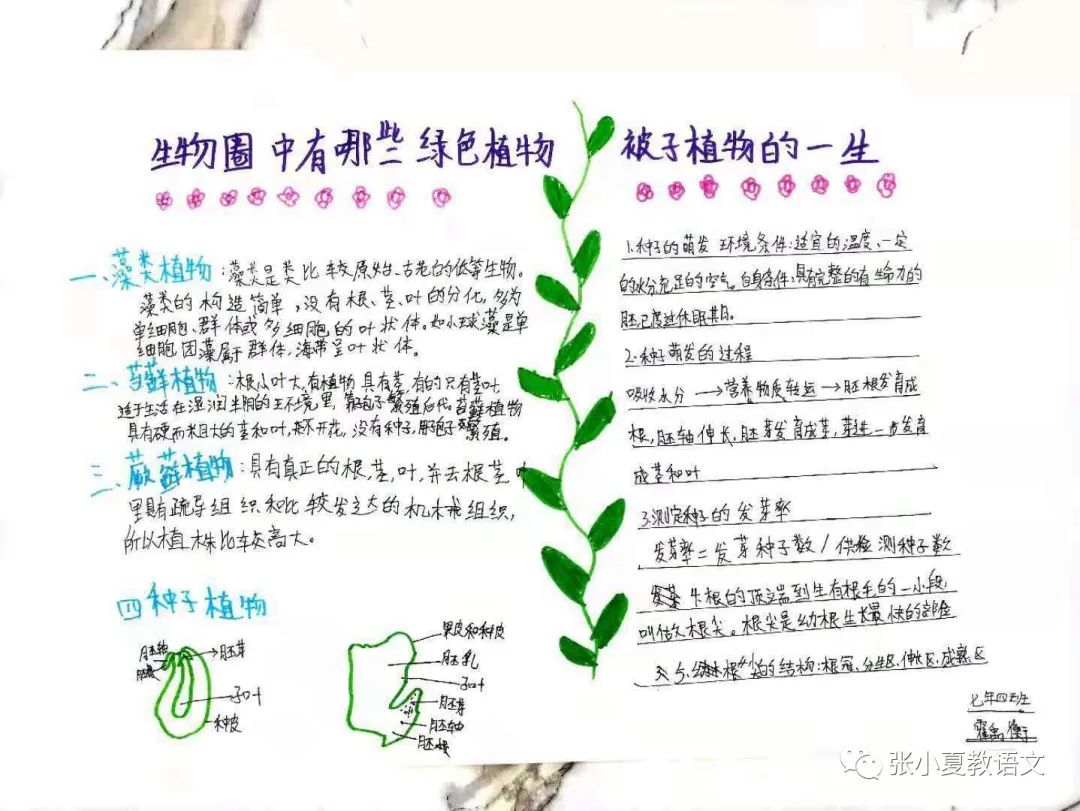 生物圈中有哪些绿色植物
一、藻类植物:藻类是类比较原始、古老的低等生物。
藻类的构造简单,没有根、茎、叶的分化,多为
单细胞、群体或多细胞的叶状体。如小球藻是单
细胞,团藻属于群体,海带呈叶状体。
二、苔藓植物:根小叶大,有植物具有茎,有的只有茎叶,
适于生活在湿润的环境里,靠孢子繁殖后代。苔藓植物
具有硬而粗大的茎和叶,不开花,没有种子,孢子繁殖。
三、蕨藓植物:具有真正的根,茎,叶,并去根茎叶
里具有疏导组织和比较发达的机械组织,
所以植株比较高大。
四种子植物
胚轴
胚根
胚芽
子叶
种皮
果皮和种皮
胚乳
子叶
胚芽
胚轴
胚根
被子植物的一生
1.种子的萌发 环境条件:适宜的温度、一定
的水分充足的空气。自身条件:具有完整的有生命力的
胚已度过休眠期。
2.种子萌发的过程
吸收水分→营养物质转运→胚根发育成
根,胚轴伸长,胚芽发育成芽,芽进一步发育
成茎和叶
3.测定种子的发芽率
发芽率=发芽种子数/供检测种子数
4.根的顶端到生有根毛的一小段
叫做根尖。根尖是幼根生长最快的部位
5.根尖的结构:根冠、分生区、伸长区、成熟区
七年四班
张小夏教语文